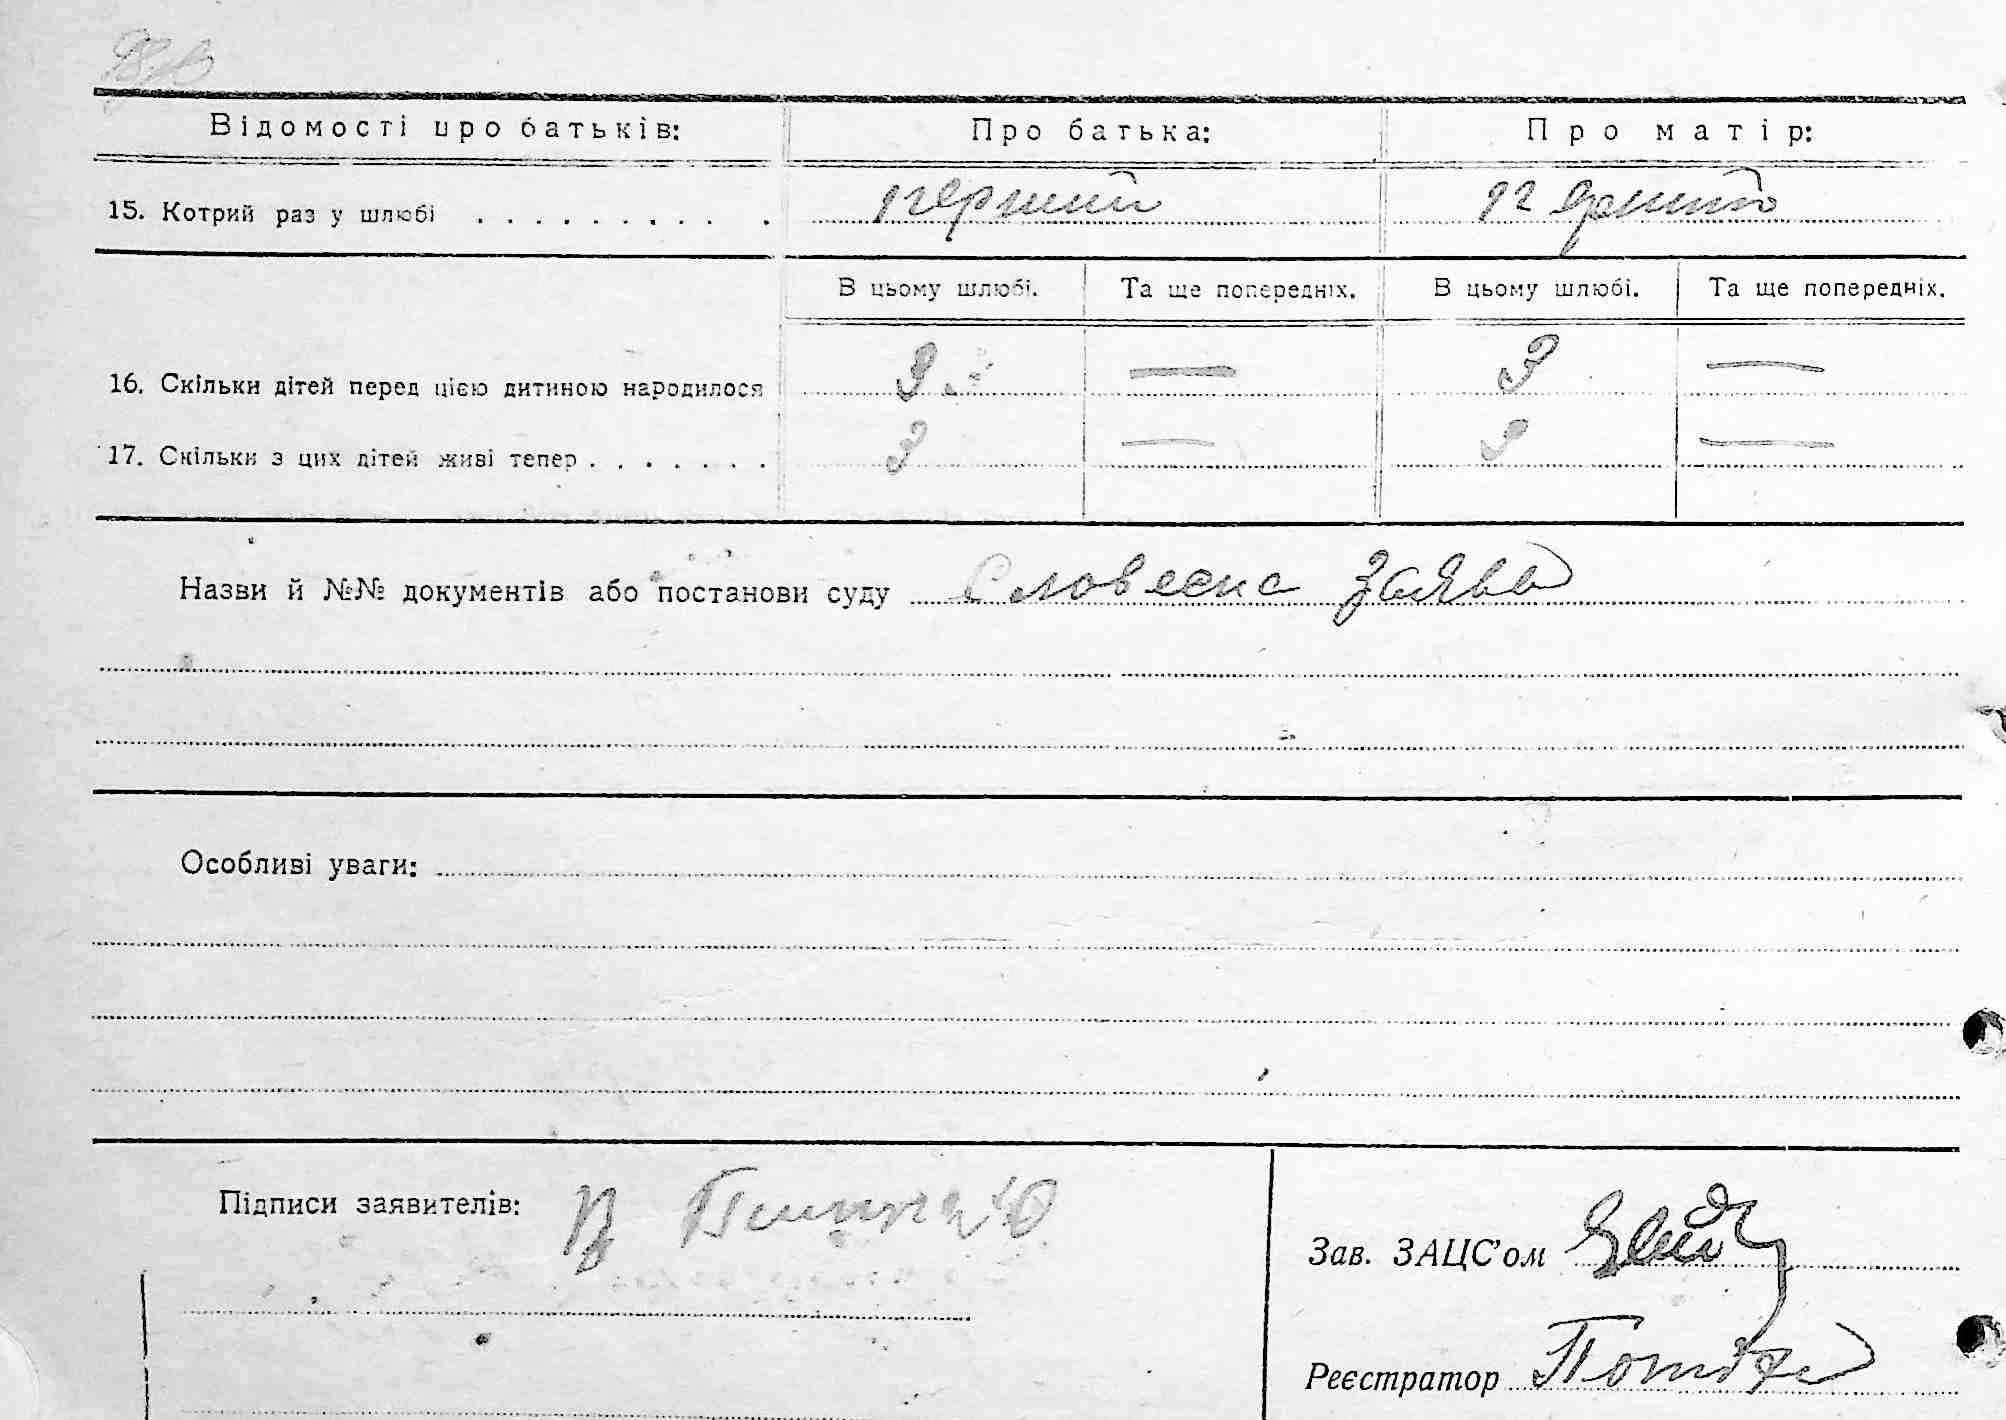 Відомості про батьків: Про батька: Про матір:
15. Котрий раз у шлюбі . . . . . . . . . . перший перший
В цьому шлюбі. Та ще попередніх. В цьому шлюбі. Та ще попередніх.
16. Скільки дітей перед цією дитиною народилося 3 — 3 —
17. Скільки з цих дітей живі тепер . . . . . . . 3 — 3 —
Назви й №№ документів або постанови суду Словесна заява
Особливі уваги:
Підписи заявителів:
Зав. ЗАЦС'ом
Реєстратор